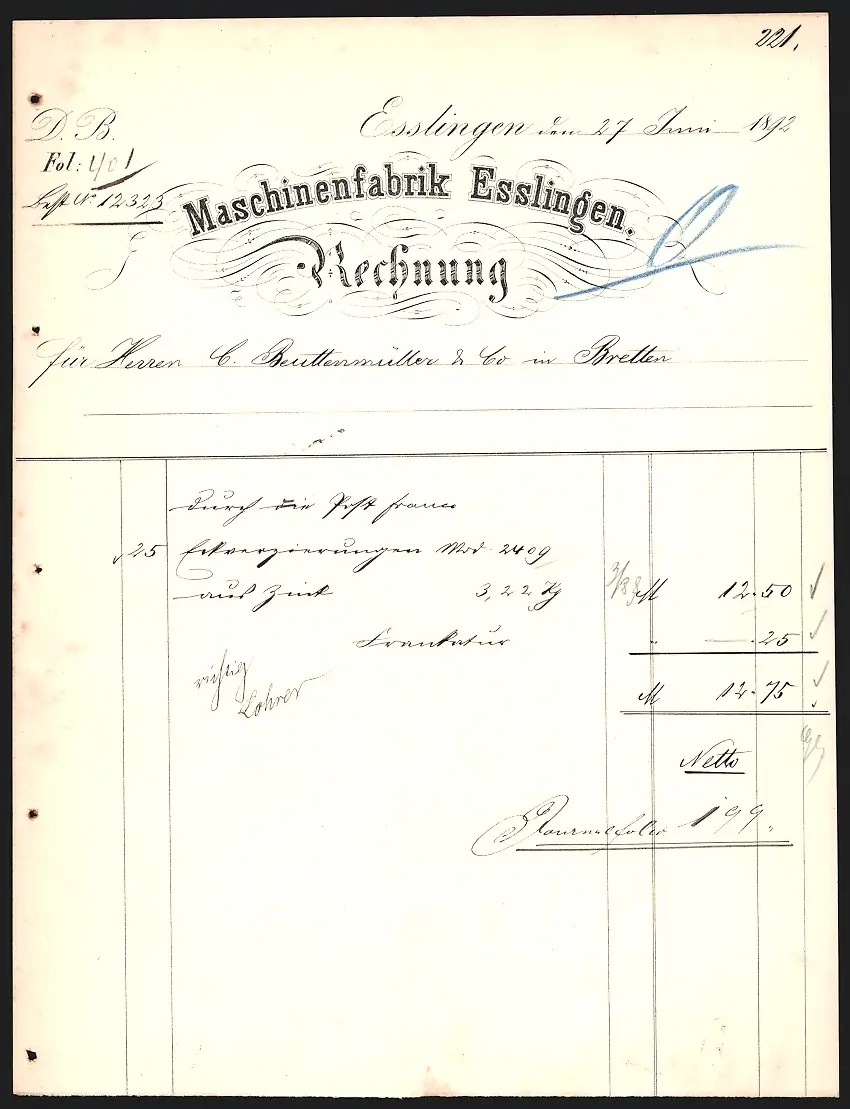 221.
D. B.
Esslingen den 27 Juni 1892
Fol: 401
Best No 12323
Maschinenfabrik Esslingen.
Rechnung
für Herren C. Beuttenmüller & Co in Bretten
durch die Post franco
25 Eckverzierungen Mod 2409
aus Zink 3,22 Kg M 12.50
Frankatur " — .25
richtig
Lohrer
M 12.75
Netto
Journalfolio 199.